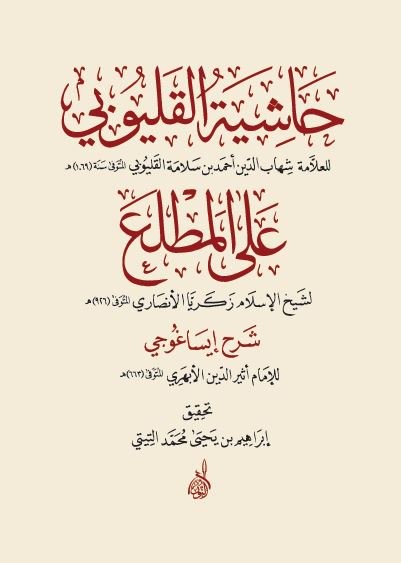 حَاشِيَةُ القَلْيُوبِي
للعلّامة شِهاب الدّين أحمد بن سَلامَة القَليُوبي المتوفى سَنة (١٠٦٩) هـ
عَلى المَطْلَع
لشَيخ الإسلام زَكريَّا الأنصَاري المتوفى (٩٢٦) هـ
شَرح إيسَاغُوجي
للإمَام أثير الدّين الأبهَري المتوفى (٦٦٣) هـ
تحقيق
إبراهيم بن يَحيَى محمَّد التيتي